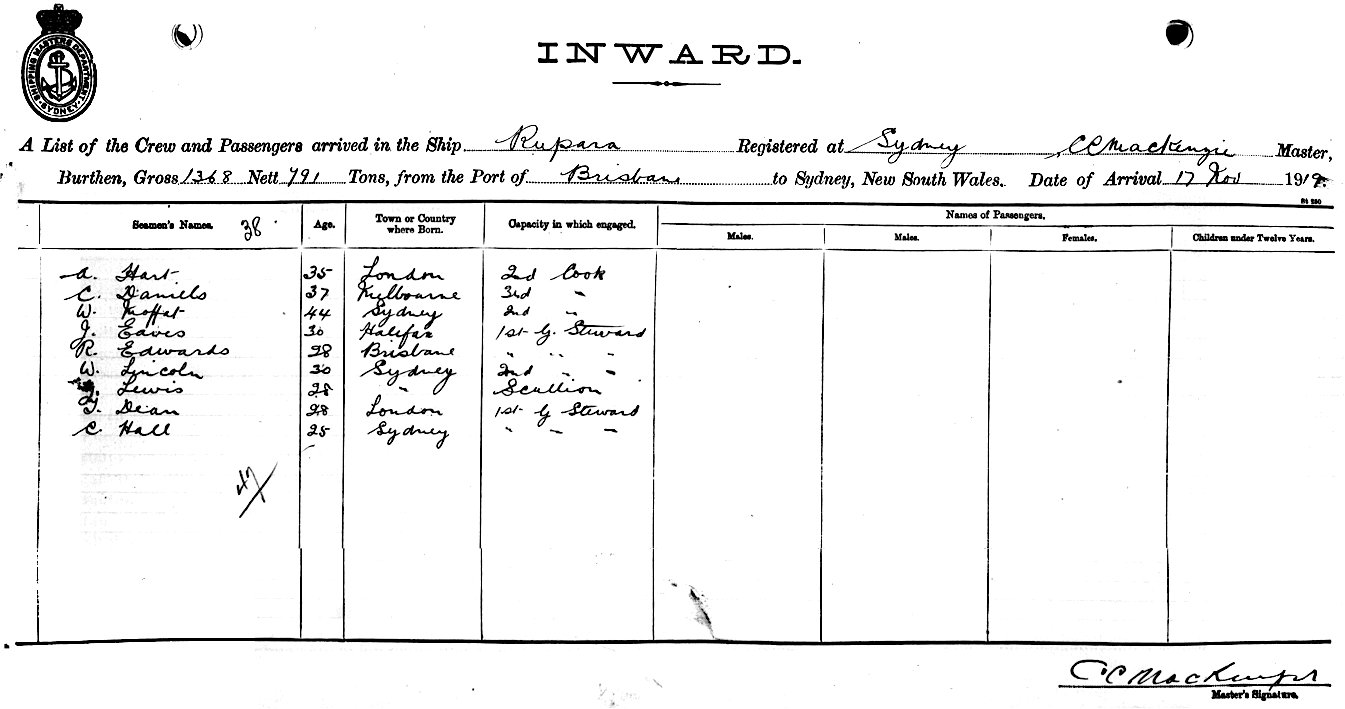 SHIPPING MASTERS DEPARTMENT. SYDNEY.
INWARD.
A List of the Crew and Passengers arrived in the Ship Rupara Registered at Sydney, CC Mackenzie Master,
Burthen, Gross 1368 Nett 791 Tons, from the Port of Brisbane to Sydney, New South Wales. Date of Arrival 17 Nov 191
Seamen's Names. 38 Age. Town or Country where Born. Capacity in which engaged. Names of Passengers.
Males. Males. Females. Children under Twelve Years.
A. Hart 35 London 2nd Cook
C. Daniels 37 Melbourne 3rd "
W. Moffat 44 Sydney 2nd "
J. Eaves 30 Halifax 1st G. Steward
R. Edwards 28 Brisbane " " "
W. Lincoln 30 Sydney 2nd " "
Lewis 28 " Scullion
T. Dean 28 London 1st G Steward
C. Hall 25 Sydney " " "
47
CC MacKenzie
Master's Signature.